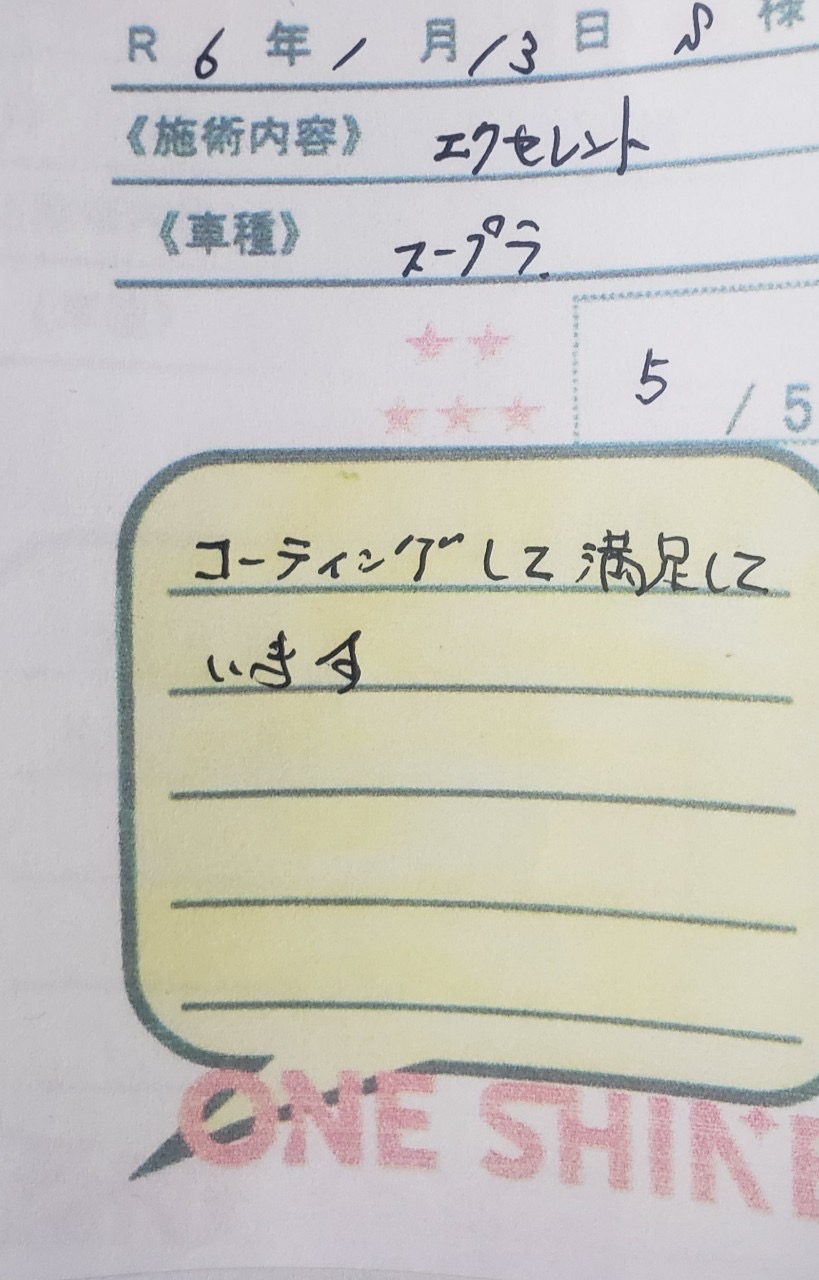 R 6 年 1 月 13 日 S 様
《施術内容》 エクセレント
《車種》 スープラ
5 / 5
コーティングして満足して
います
ONE SHINE